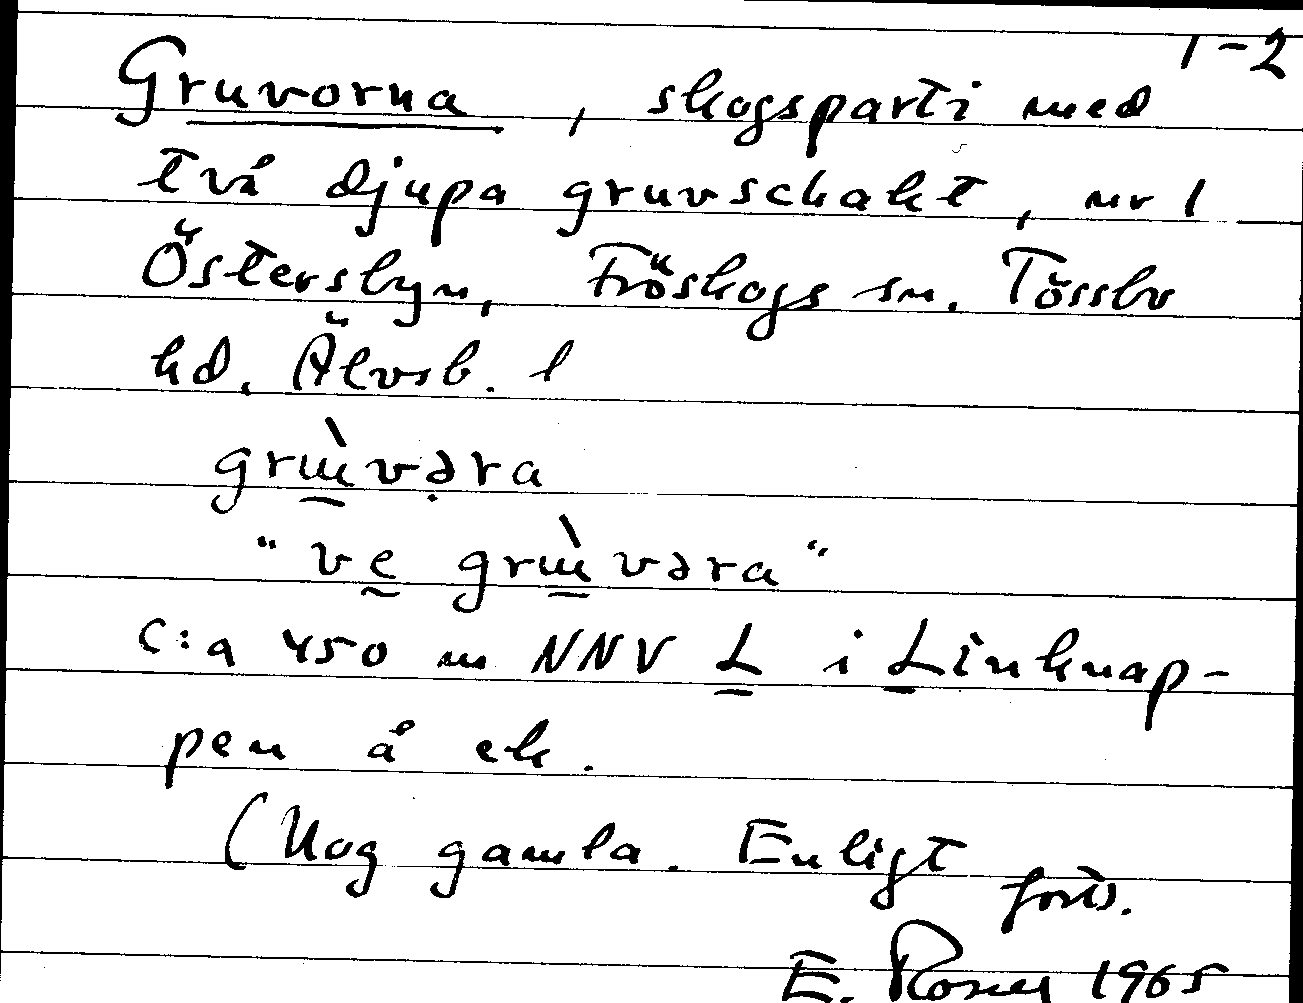 1-2
Gruvorna, skogsparti med
två djupa gruvschakt, nr 1
Östersbyn, Fröskogs sn. Tössbo
hd. Älvsb. l
grɯ̀vəra
"ve grɯ̀vəra"
c:a 450 m NNV L i Linknap-
pen å ek.
(Nog gamla. Enligt
forts.
E. 1965